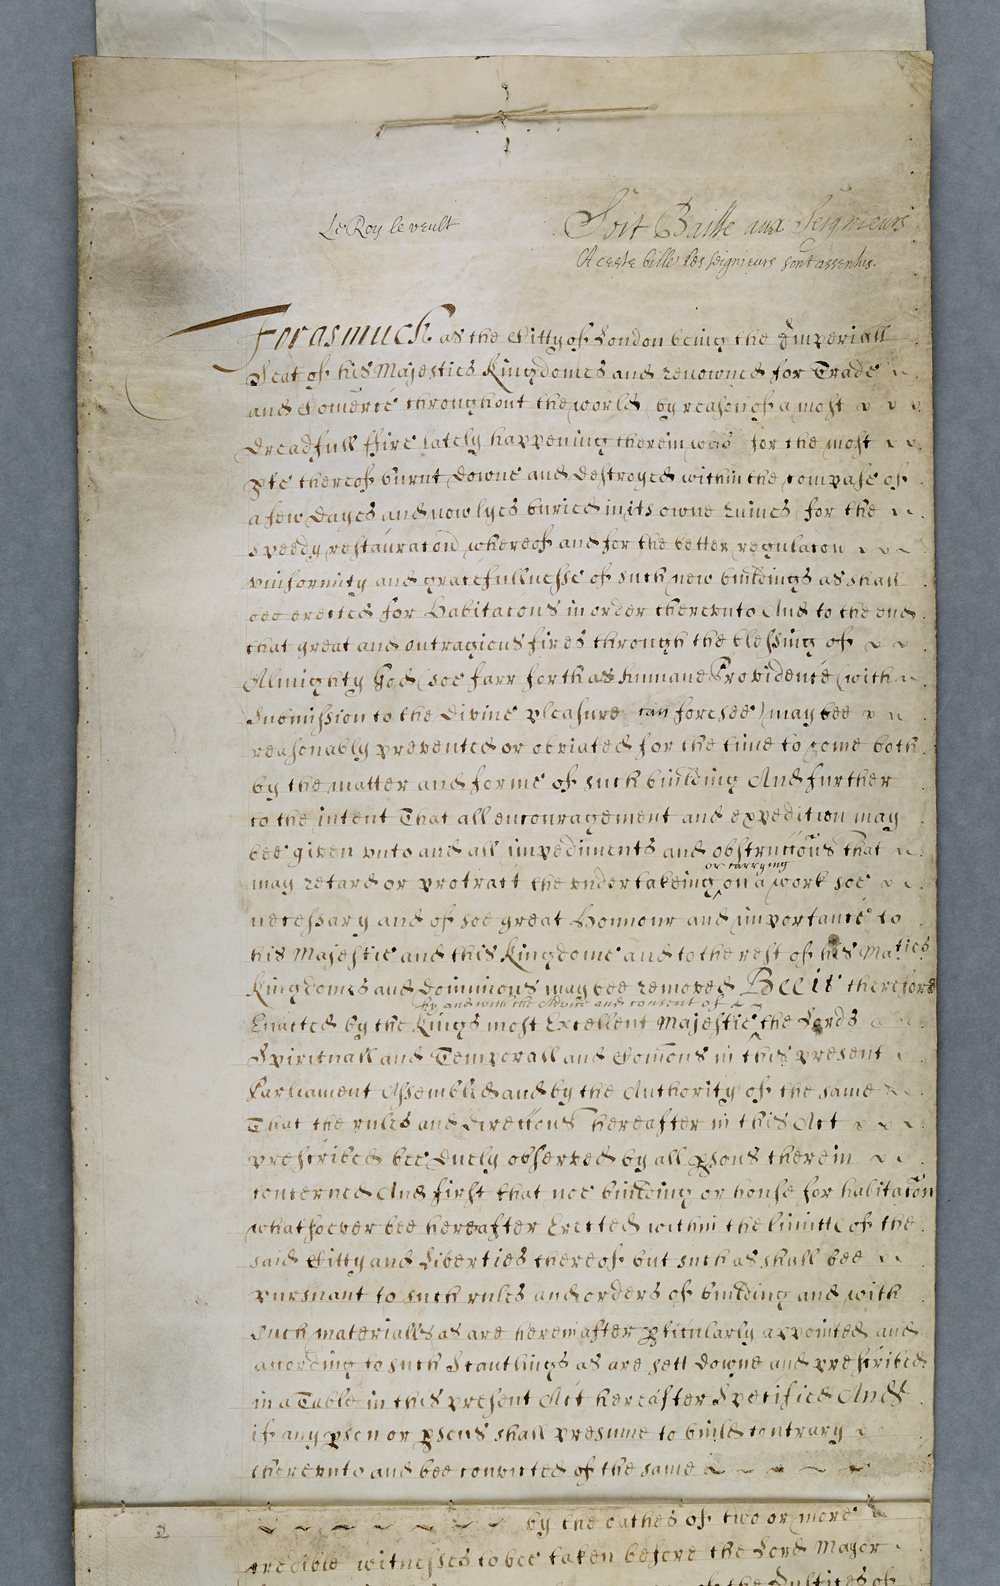 Le Roy le veult
Soit Baille aux Seigneurs
A ceste bille les seigneurs sont assentus.
Forasmuch as the Citty of London being the Imperiall
Seat of his Majesties Kingdomes and renowned for Trade
and Comerce throughout the world by reason of a most
dreadfull ffire lately happening therein was for the most
pte thereof burnt downe and destroyed within the compase of
a few dayes and now lyes buried in its owne ruines for the
speedy restauracon whereof and for the better regulacon
vniformity and gracefullnesse of such new buildings as shall
bee erected for Habitacons in order therevnto And to the end
that great and outragious fires through the blessing of
Almighty God (soe farr forth as humane Providence (with
submission to the divine pleasure can foresee) may bee
reasonably prevented or obviated for the time to come both
by the matter and forme of such building And further
to the intent That all encouragement and expedition may
bee given vnto and all impediments and obstruccons that
or carrying
may retard or protract the undertakeing on a work soe
necessary and of soe great Honnour and importance to
his Majestie and this Kingdome and to the rest of his Maties
Kingdomes and dominions may bee removed Bee it therefore
by and with the Advice and consent of
Enacted by the Kings most Excellent Majestie the Lords
Spirituall and Temporall and Comons in this present
Parliament Assembled and by the Authority of the same
That the rules and direccons hereafter in this Act
prescribed bee duely observed by all psons therein
concerned And first that noe building or house for habitacon
whatsoever bee hereafter Erected within the limitts of the
said Citty and Liberties thereof but such as shall bee
pursuant to such rules and orders of building and with
such materialls as are herein after pticularly appointed and
according to such Scantlings as are sett downe and prescribed
in a Table in this present Act hereafter Specified And
if any pson or psons shall presume to build contrary
therevnto and bee convicted of the same
2
by the oathes of two or more
credible witnesses to bee taken before the Lord Mayor
of the Justices of